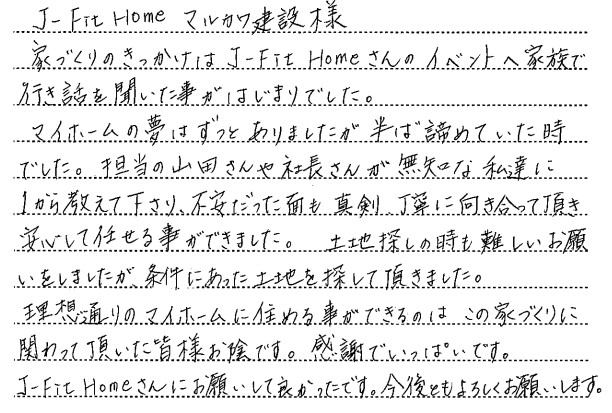 J-Fit Home マルカワ建設様
家づくりのきっかけは J-Fit Homeさんのイベントへ家族で
行き話を聞いた事がはじまりでした。
マイホームの夢はずっとありましたが半ば諦めていた時
でした。担当の山田さんや社長さんが無知な私達に
1から教えて下さり、不安だった面も真剣、丁寧に向き合って頂き
安心して任せる事ができました。 土地探しの時も難しいお願
いをしましたが、条件にあった土地を探して頂きました。
理想通りのマイホームに住める事ができるのは この家づくりに
関わって頂いた皆様お陰です。感謝でいっぱいです。
J-Fit Homeさんにお願いして良かったです。今後ともよろしくお願いします。